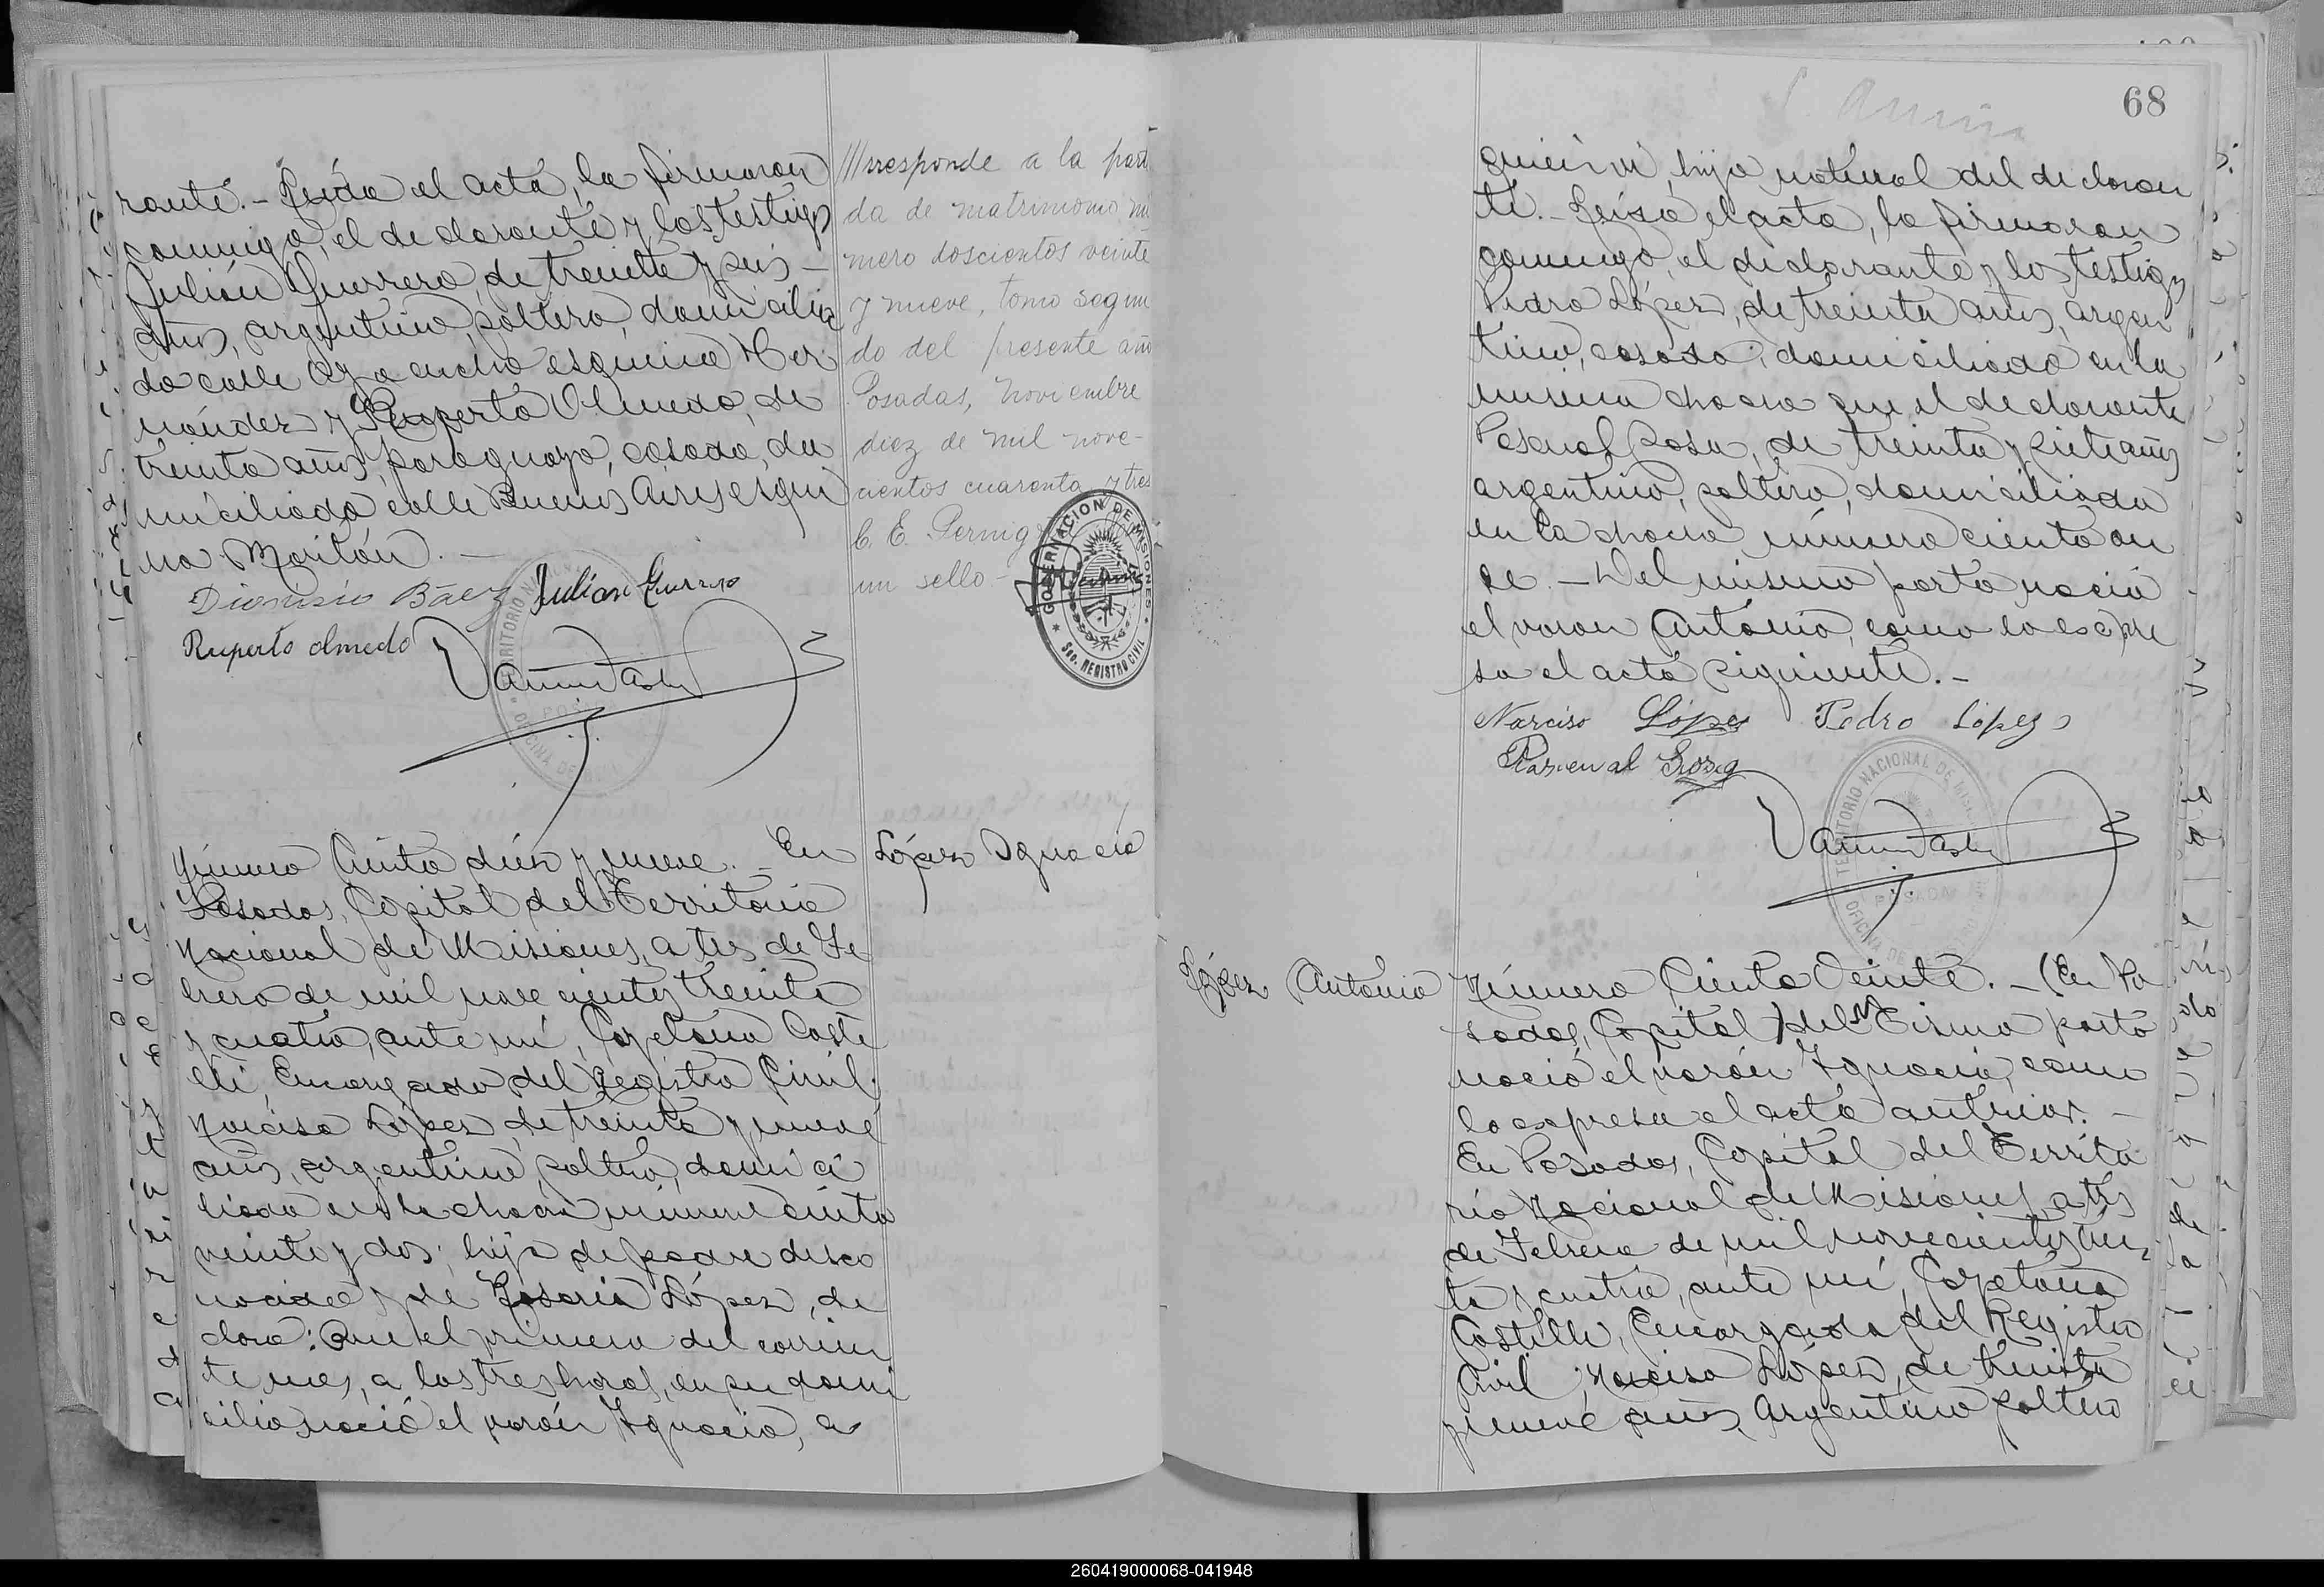 rante.- Leída el acta, la firmaron
conmigo, el declarante y los testigos
Julián Guerrero, de treinta y seis -
años, argentino, soltero, domicilia
do calle Ayacucho esquina Her
nández y Ruperto Olmedo, de
treinta años, paraguayo, casado, do
miciliado calle Buenos Aires esqui
na Moritán. -
Dionisio Báez Julian Guerrero
Ruperto olmedo
///rresponde a la parti
da de matrimonio nú
mero doscientos veinte
y nueve, tomo segun
do del presente año
Posadas, Noviembre
diez de mil nove-
cientos cuarenta y tres
C. E. Pernig
un sello -
GOBERNACION DE MISIONES
Sec. REGISTRO CIVIL
Número Ciento diez y nueve. - En
Posadas, Capital del Territorio
Nacional de Misiones, a tres de Fe
brero de mil novecientos treinta
y cuatro, ante mí, Cayetano Caste
lli, Encargado del Registro Civil.
Narciso López, de treinta y nueve
años, argentino, soltero, domici
liado en la chacra número ciento
veinte y dos; hijo de padre desco
nocido y de Rosario López, de
clara: Que el primero del corrien
te mes, a las tres horas, en su domi
cilio nació el varón Ignacio, a
López Ignacio
68
quien vi, hijo natural del declaran
te. - Leída el acta, la firmaron
conmigo, el declarante y los testigos
Pedro López, de treinta años, argen
tino, casado, domiciliado en la
misma chacra que el declarante
Pascual Sosa, de treinta y siete años
argentino, soltero, domiciliado
en la chacra número ciento on
ce. - Del mismo parto nació
el varon Antonio, como lo expre
sa el acta siguiente. -
Narciso López Pedro López
Pascual Sosa
TERRITORIO NACIONAL DE MISIONES
POSADAS
López Antonio
Número Ciento Veinte. - (En Po
sadas, Capital) del Mismo parto
nació el varón Ignacio, como
lo expresa el acta anterior. -
En Posadas, Capital del Territo
rio Nacional de Misiones, a tres
de Febrero de mil novecientos trein
ta y cuatro, ante mí, Cayetano
Castelli, Encargado del Registro
Civil; Narciso López, de treinta
y nueve años, Argentino soltero
260419000068-041948